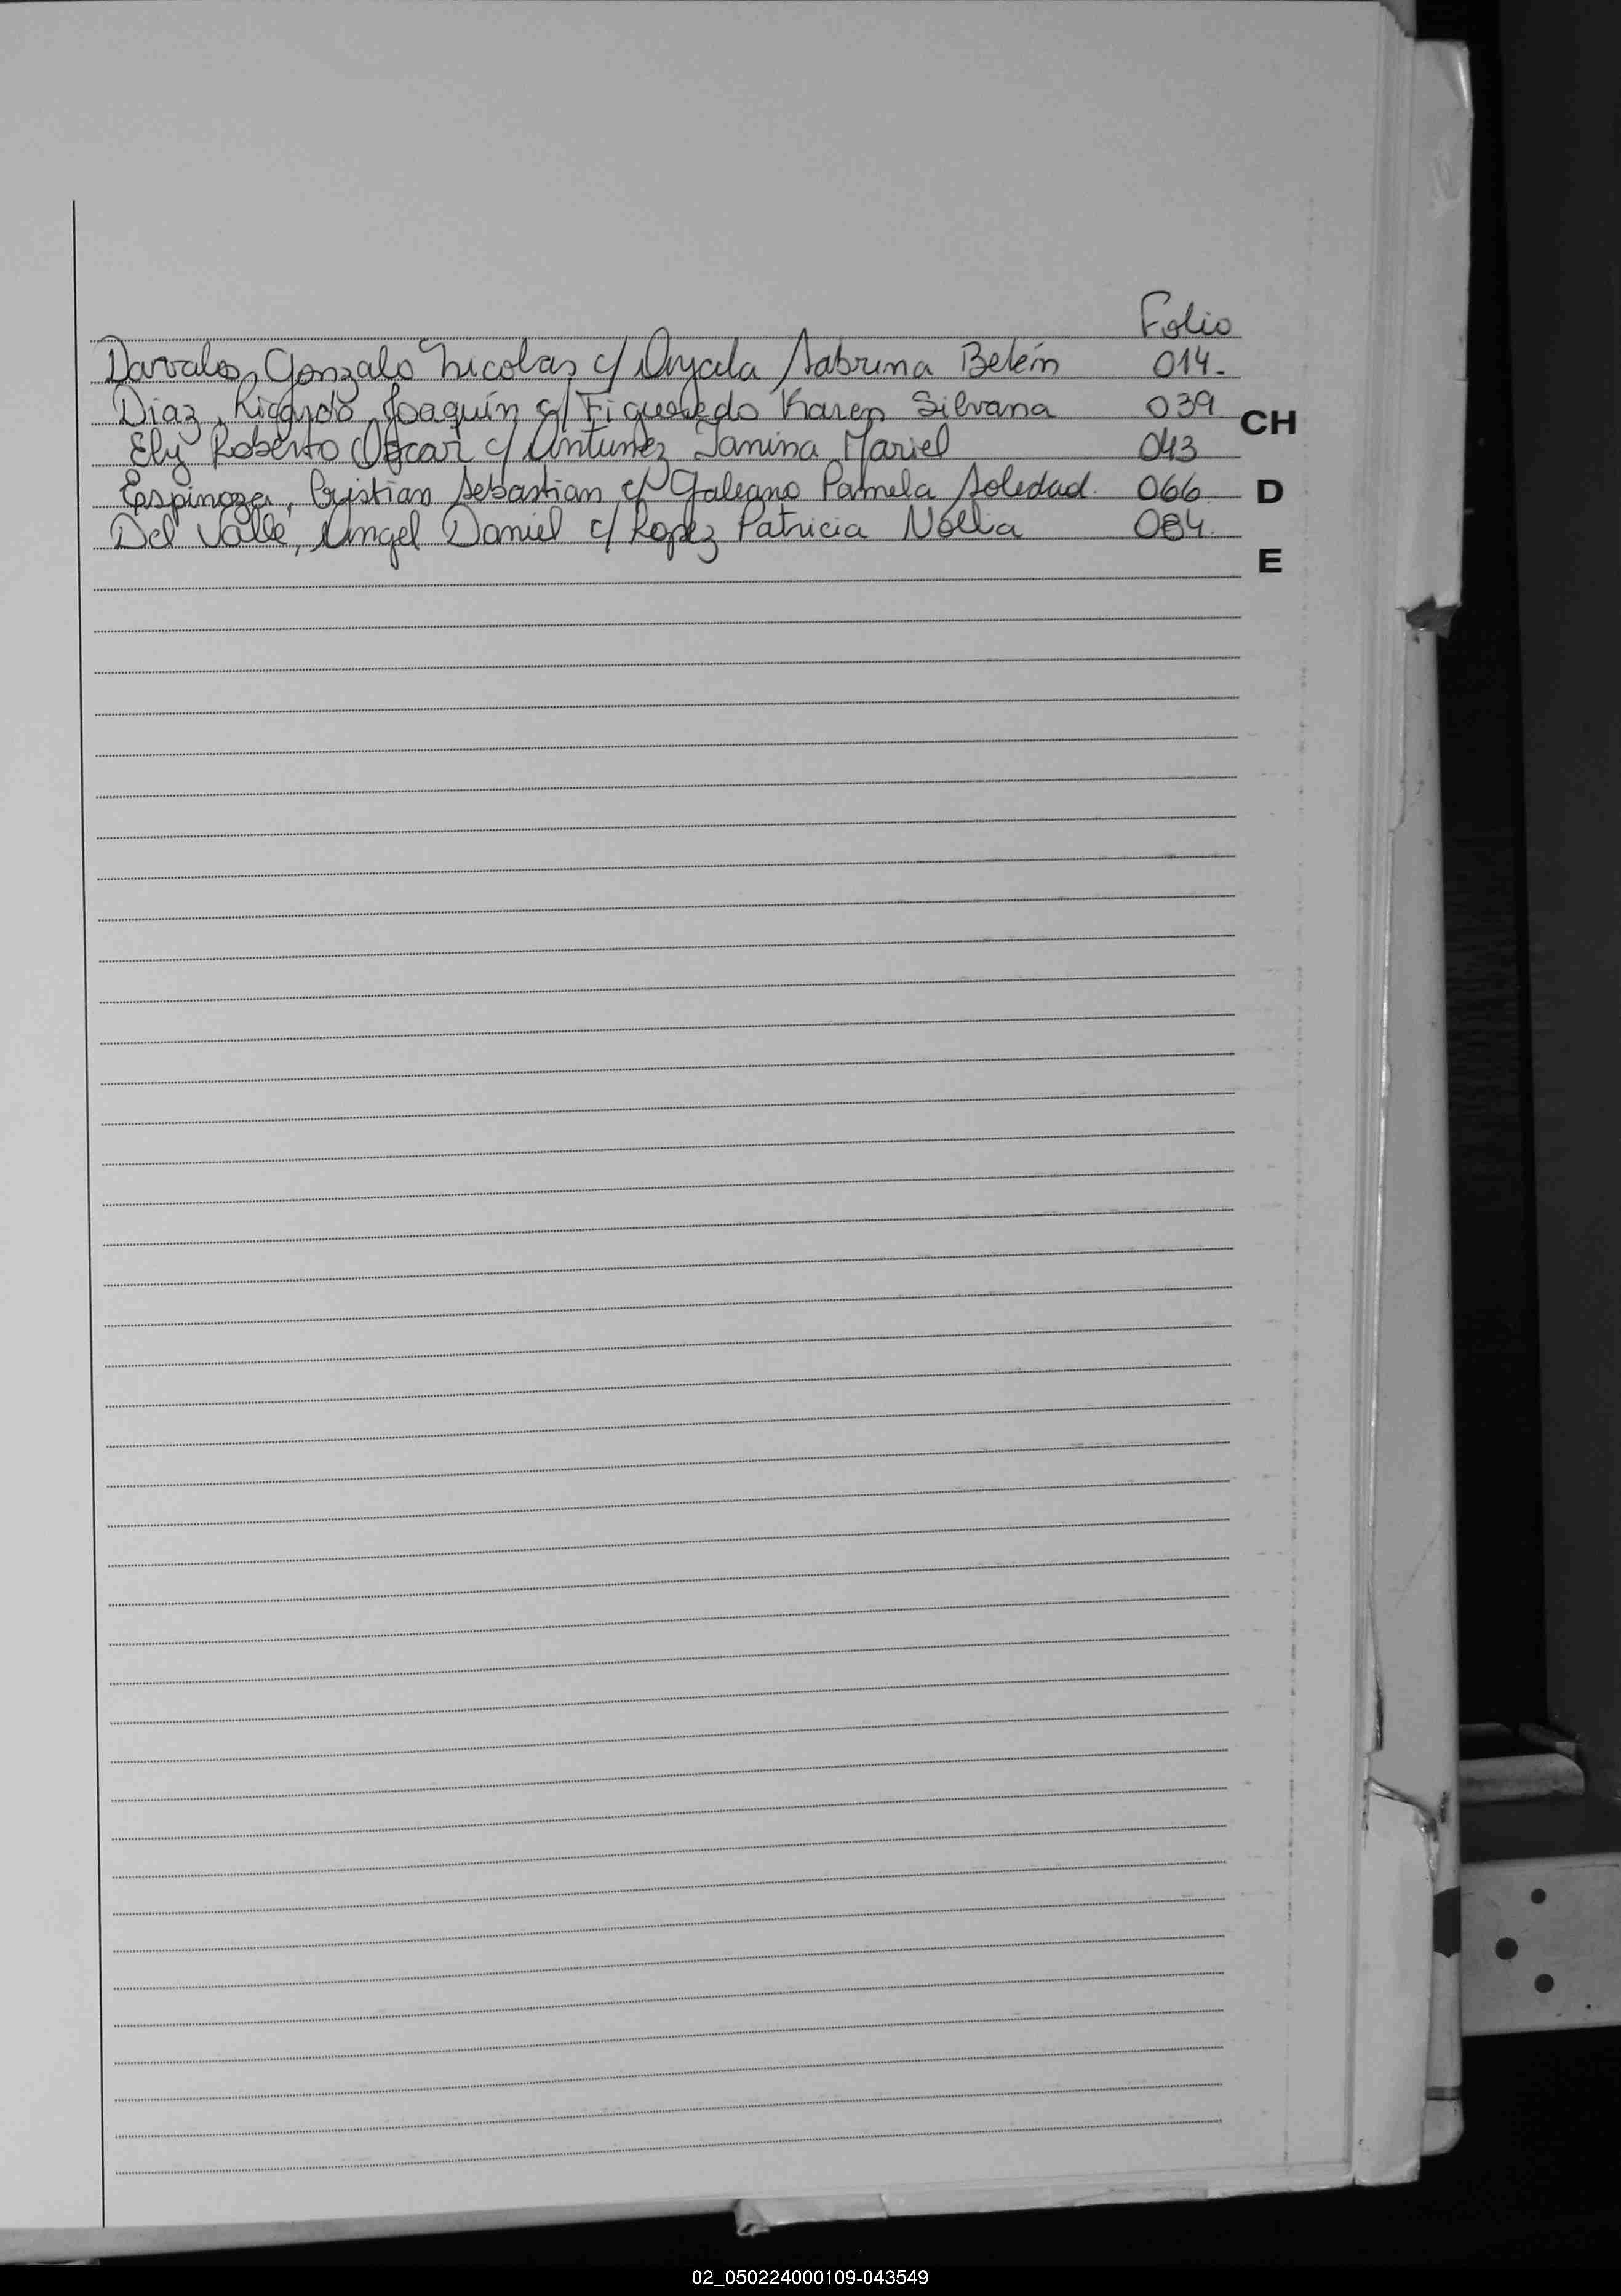 Folio
Davalos, Gonzalo Nicolas c/ Ayala Sabrina Belén 014.
Diaz, Ricardo Joaquín c/ Figueredo Karen Silvana 039 CH
Ely Roberto Oscar c/ Antunez Janina Mariel 043
Espinoza, Cristian Sebastian c/ Galeano Pamela Soledad. 066 D
Del Valle, Angel Daniel c/ Lopez Patricia Noelia 084.
E
02_050224000109-043549